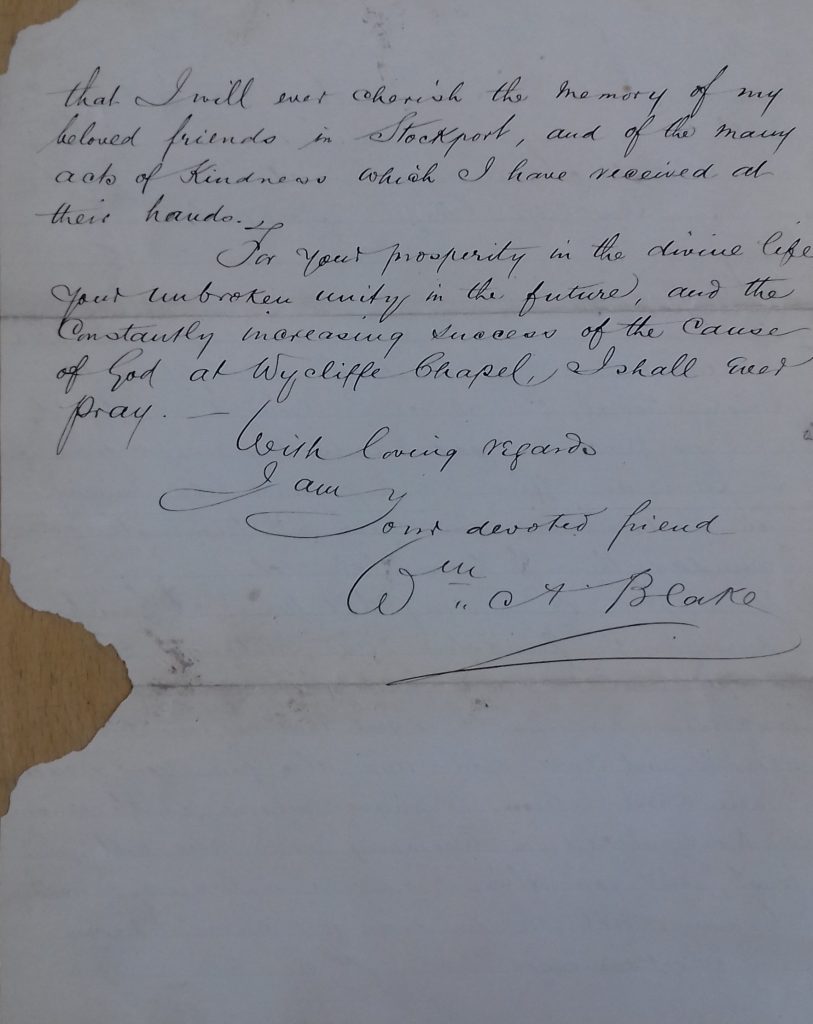 that I will ever cherish the memory of my
beloved friends in Stockport, and of the many
acts of Kindness which I have received at
their hands.
For your prosperity in the divine life
your unbroken unity in the future, and the
Constantly increasing success of the Cause
of God at Wycliffe Chapel, I shall ever
pray. —
With loving regards
I am
Your devoted friend
Wm A Blake